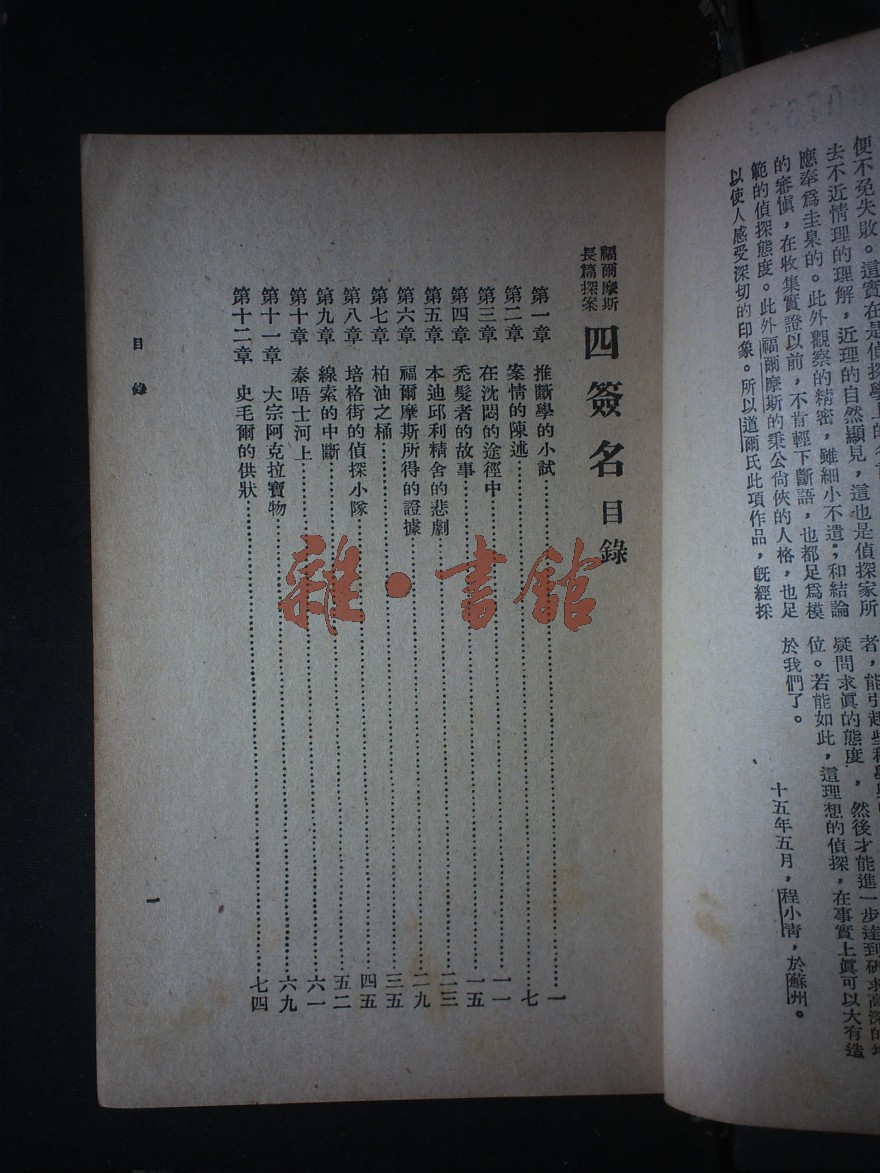 便不免失敗。這實在是偵探學上的
去不近情理的理解，近理的自然顯見，這也是偵探家所
應奉爲圭臬的。此外觀察的精密，雖細小不遺；和結論
的審愼，在收集實證以前，不肯輕下斷語，也都足爲模
範的偵探態度。此外福爾摩斯的秉公尙俠的人格，也足
以使人感受深切的印象。所以道爾氏此項作品，旣經採
者，能引起些科學
疑問求眞的態度，然後才能進一步達到研求高深的
位。若能如此，這理想的偵探，在事實上眞可以大有造
於我們了。
十五年五月，程小青，於蘇州。
福爾摩斯
長篇探案
四簽名目錄
第一章 推斷學的小試……一
第二章 案情的陳述……七
第三章 在沈悶的途徑中……一一
第四章 禿髮者的故事……一五
第五章 本迪邱利精舍的悲劇……二三
第六章 福爾摩斯所得的證據……二九
第七章 柏油之桶……三五
第八章 培格街的偵探小隊……四五
第九章 線索的中斷……五二
第十章 泰晤士河上……六一
第十一章 大宗阿克拉寶物……六九
第十二章 史毛爾的供狀……七四
目錄
一
雜·書館